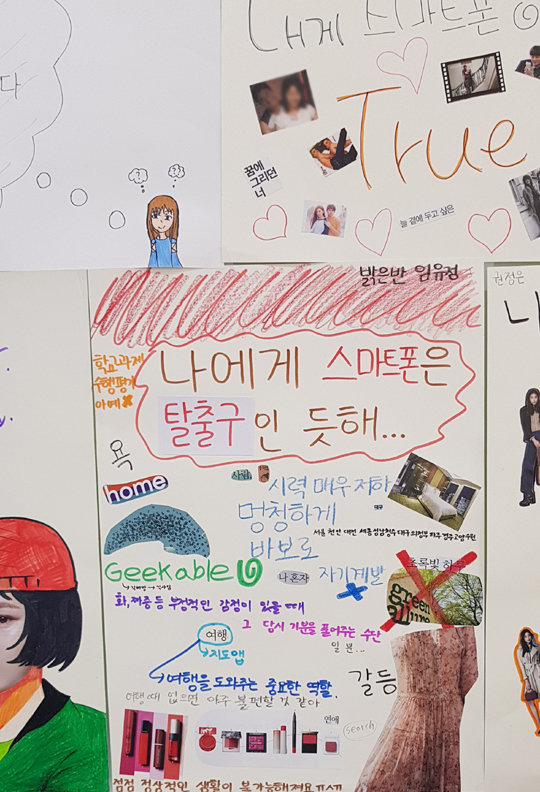 다
내게 스마트폰
True
꿈에
그리던
너
늘 곁에 두고 싶은
?? ??
밝은반 임유정
권정은
학교과제
수행평가
아예 x
나에게 스마트폰은
탈출구인 듯해...
욕
home
시력 매우 저하
멍청하게
대구
바보로
Geekable
나 혼자
자기계발
초록빛 하루
green
화, 짜증 등 부정적인 감정이 있을 때
그 당시 기분을 풀어주는 수단
여행
일본...
지도앱
여행을 도와주는 중요한 역할.
갈등
여행 때 없으면 아주 불편할 것 같아
연애
search
점점 정상적인 생활이 불가능해져요 ㅠㅅㅠ